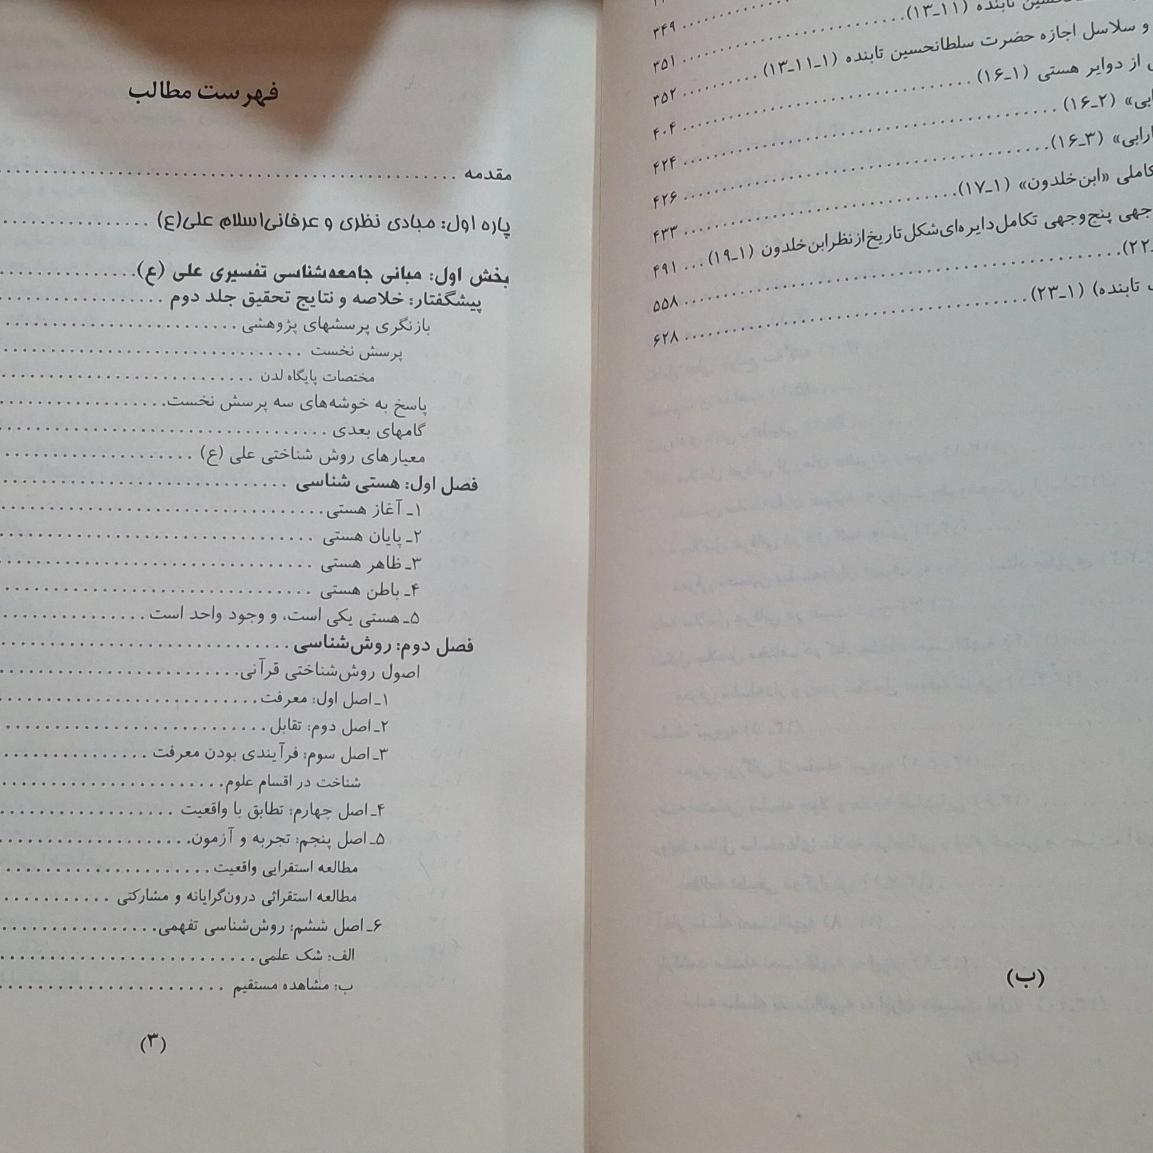 تابنده (۱۱ـ۱۳) ۳۴۹
و سلاسل اجازه حضرت سلطانحسین تابنده (۱ـ۱۱ـ۱۳) ۳۵۱
از دوایر هستی (۱ـ۱۶) ۳۵۲
(۲ـ۱۶) ۴۰۴
(۳ـ۱۶) ۴۲۴
«ابن خلدون» (۱ـ۱۷) ۴۲۶
پنج‌وجهی تکامل دایره‌ای شکل تاریخ از نظر ابن خلدون (۱ـ۱۹) ۴۳۳
۴۹۱
۲۲) ۵۵۸
تابنده) (۱ـ۲۳) ۶۲۸
(ب)
فهرست مطالب
مقدمه
پاره اول: مبادی نظری و عرفانی اسلام علی(ع)
بخش اول: مبانی جامعه‌شناسی تفسیری علی (ع)
پیشگفتار: خلاصه و نتایج تحقیق جلد دوم
بازنگری پرسشهای پژوهشی
پرسش نخست
مختصات پایگاه لدن
پاسخ به خوشه‌های سه پرسش نخست
گامهای بعدی
معیارهای روش شناختی علی (ع)
فصل اول: هستی شناسی
۱ـ آغاز هستی
۲ـ پایان هستی
۳ـ ظاهر هستی
۴ـ باطن هستی
۵ـ هستی یکی است، و وجود واحد است
فصل دوم: روش‌شناسی
اصول روش‌شناختی قرآنی
۱ـ اصل اول: معرفت
۲ـ اصل دوم: تقابل
۳ـ اصل سوم: فرآیندی بودن معرفت
شناخت در اقسام علوم
۴ـ اصل چهارم: تطابق با واقعیت
۵ـ اصل پنجم: تجربه و آزمون
مطالعه استقرایی واقعیت
مطالعه استقرائی درون‌گرایانه و مشارکتی
۶ـ اصل ششم: روش‌شناسی تفهمی
الف: شک علمی
ب: مشاهده مستقیم
(۳)